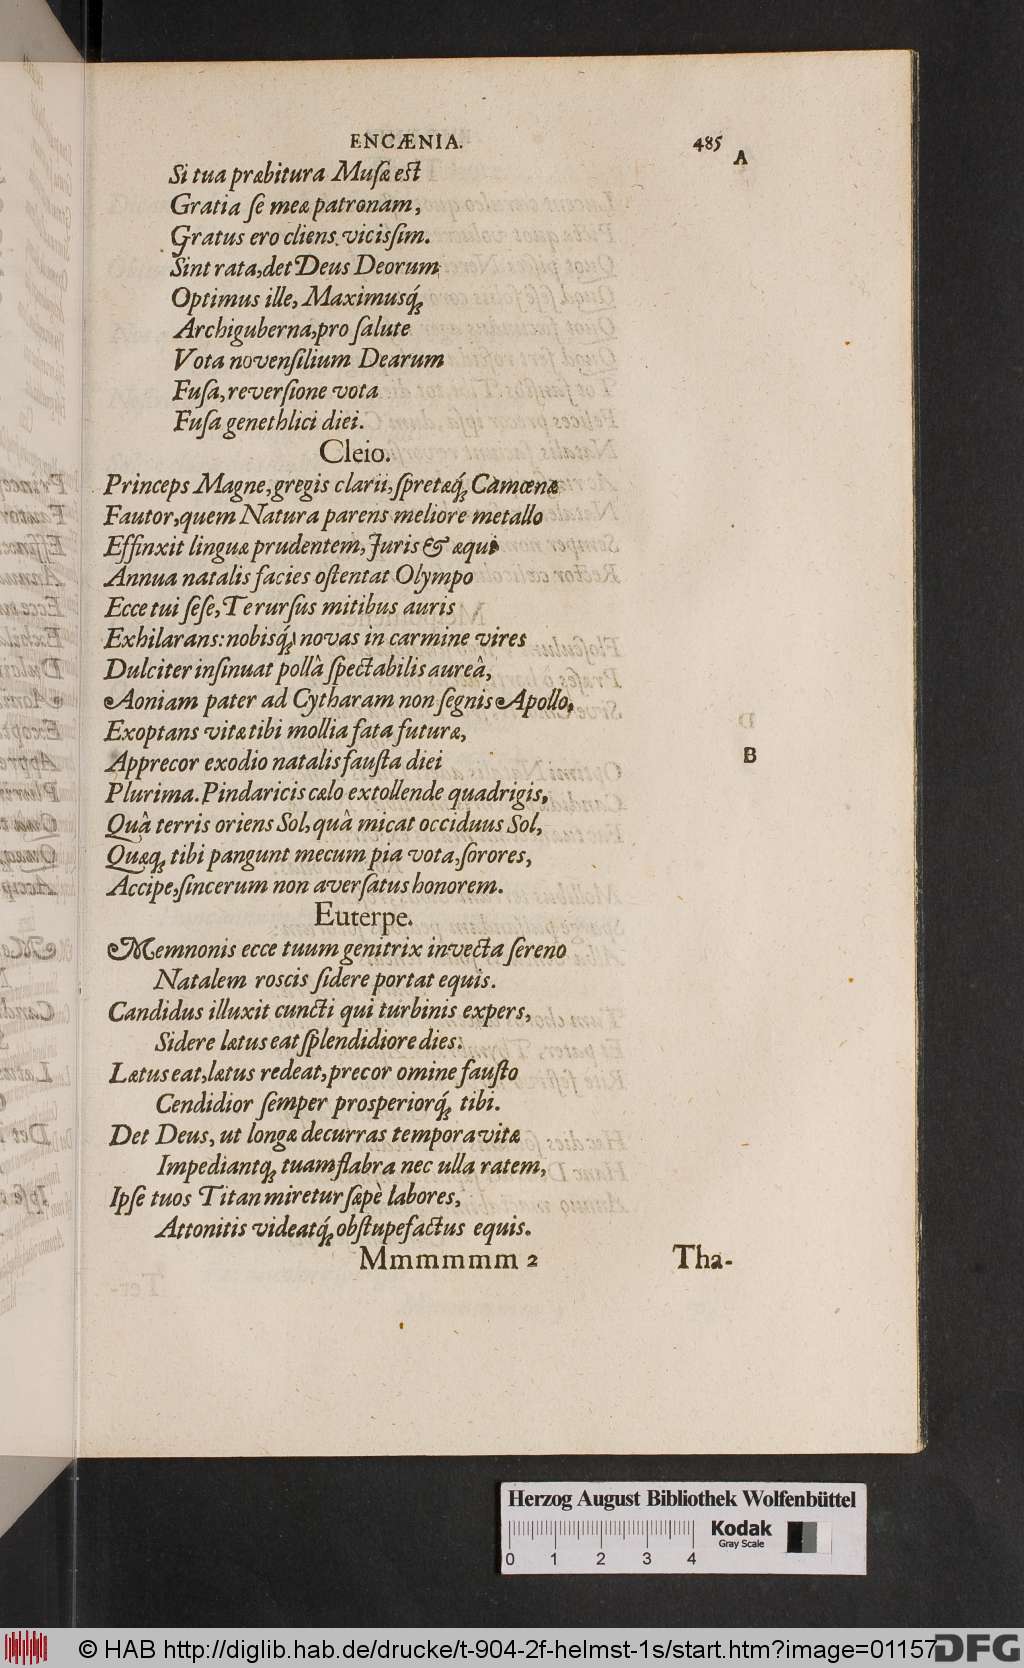 ENCÆNIA. 485
A
Si tua præbitura Musæ est
Gratia se meæ patronam,
Gratus ero cliens vicissim.
Sint rata, det Deus Deorum
Optimus ille, Maximusq́;
Archiguberna, pro salute
Vota novensilium Dearum
Fusa, reversione vota
Fusa genethlici diei.
Cleio.
Princeps Magne, gregis clarii, spretæq́; Camœnæ
Fautor, quem Natura parens meliore metallo
Effinxit linguæ prudentem, Juris & æqui
Annua natalis facies ostentat Olympo
Ecce tui sese, Te rursus mitibus auris
Exhilarans: nobisq́; novas in carmine vires
Dulciter insinuat pollâ spectabilis aureâ,
Aoniam pater ad Cytharam non segnis Apollo,
Exoptans vitæ tibi mollia fata futuræ,
Apprecor exodio natalis fausta diei
B
Plurima. Pindaricis cælo extollende quadrigis,
Quâ terris oriens Sol, quâ micat occiduus Sol,
Quæq; tibi pangunt mecum pia vota, sorores,
Accipe, sincerum non aversatus honorem.
Euterpe.
Memnonis ecce tuum genitrix invecta sereno
Natalem roscis sidere portat equis.
Candidus illuxit cuncti qui turbinis expers,
Sidere lætus eat splendidiore dies:
Lætus eat, lætus redeat, precor omine fausto
Cendidior semper prosperiorq́; tibi.
Det Deus, ut longæ decurras tempora vitæ
Impediantq; tuam flabra nec ulla ratem,
Ipse tuos Titan miretur sæpè labores,
Attonitis videatq́; obstupefactus equis.
Mmmmmm 2 Tha-
Herzog August Bibliothek Wolfenbüttel
Kodak
Gray Scale
0 1 2 3 4
© HAB http://diglib.hab.de/drucke/t-904-2f-helmst-1s/start.htm?image=01157
DFG